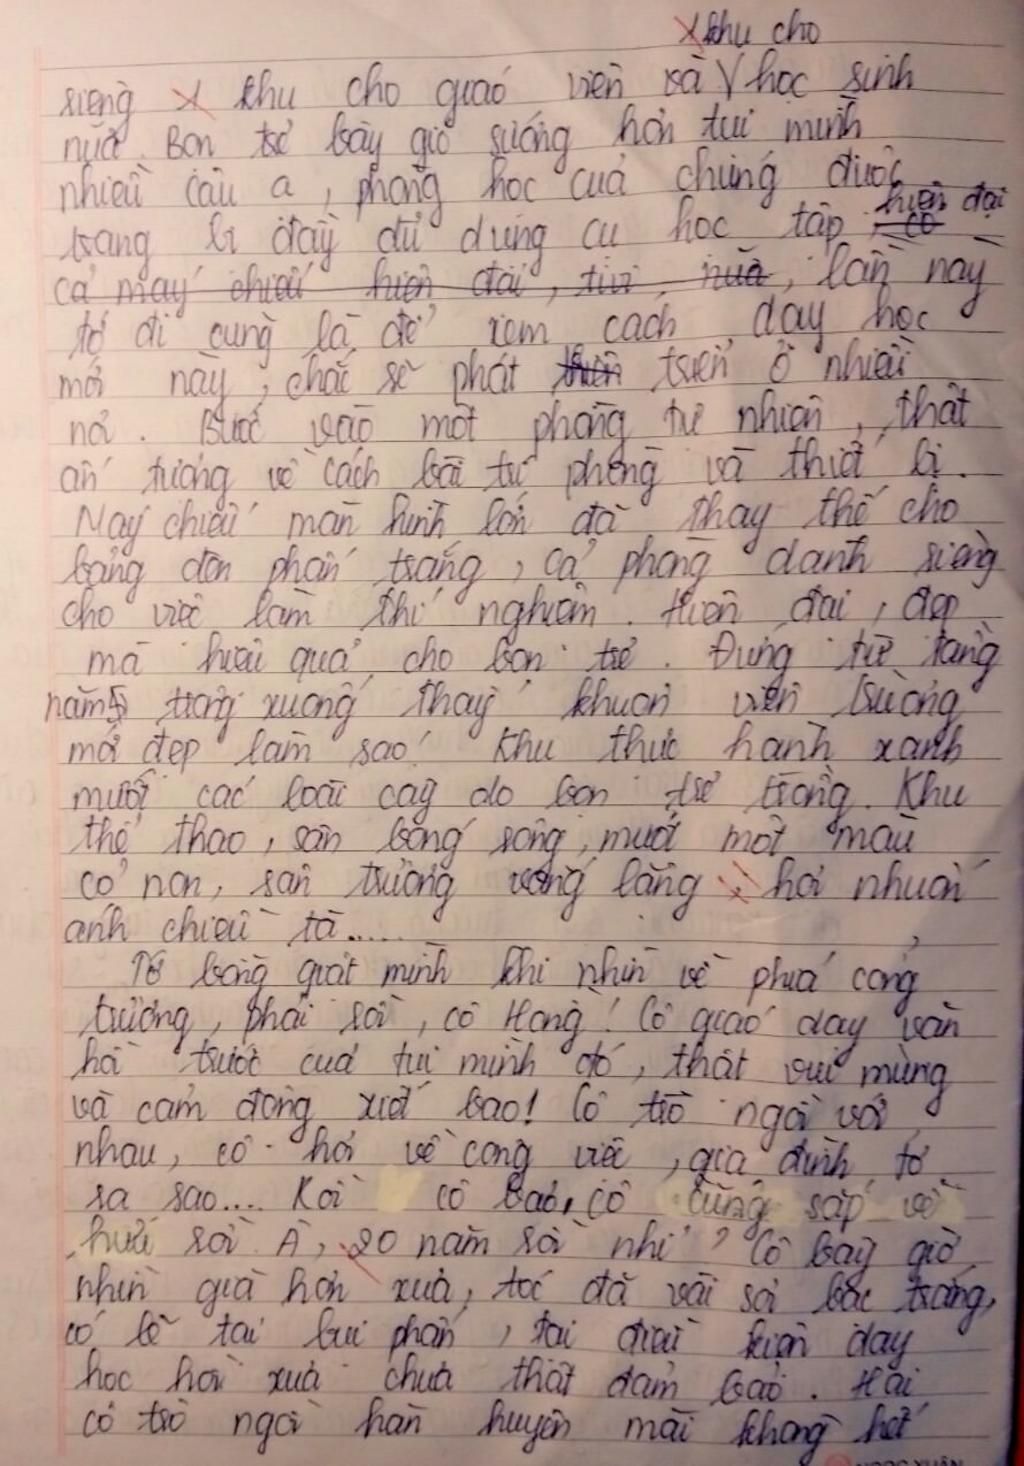 khu cho
riêng khu cho giáo viên và học sinh
nữa. Bọn trẻ bây giờ sướng hơn tụi mình
nhiều cậu ạ, phòng học của chúng được
trang bị đầy đủ dụng cụ học tập, hiện đại có
cả máy chiếu hiện đại, tivi, nữa, lần này
tớ đi cũng là để xem cách dạy học
mới này, chắc sẽ phát triển ở nhiều
nơi. Bước vào một phòng tự nhiên, thật
ấn tượng về cách bài trí phòng và thiết bị.
Máy chiếu màn hình lớn đã thay thế cho
bảng đen phấn trắng, cả phòng dành riêng
cho việc làm thí nghiệm. Hiện đại, đẹp
mà hiệu quả cho bọn trẻ. Đứng từ tầng
năm trông xuống thấy khuôn viên trường
mới đẹp làm sao! Khu thực hành xanh
mướt các loài cây do bọn trẻ trồng. Khu
thể thao, sân bóng rộng, mướt một màu
cỏ non, sân trường vắng lặng, hơi nhuốm
ánh chiều tà.....
Tớ bỗng giật mình khi nhìn về phía cổng
trường, phải rồi, cô Hồng! Cô giáo dạy văn
hồi trước của tụi mình đó, thật vui mừng
và cảm động xiết bao! Cô trò ngồi với
nhau, cô hỏi về công việc, gia đình tớ
ra sao.... Rồi cô bảo, cô cũng sắp về
hưu rồi. À, 20 năm rồi nhỉ? Cô bây giờ
nhìn già hơn xưa, tóc đã vài sợi bạc trắng,
có lẽ tại bụi phấn, tại điều kiện dạy
học hồi xưa chưa thật đảm bảo. Hai
cô trò ngồi hàn huyên mãi không hết
NGỌC XUÂN